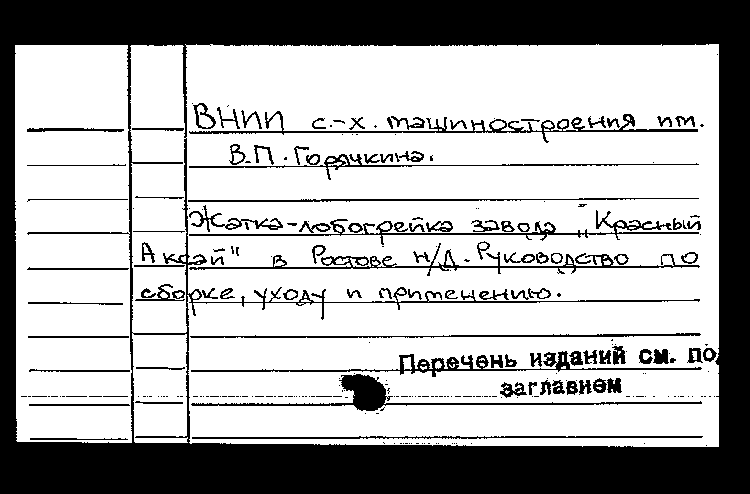 ВНИИ с.-х. машиностроения им.
В.П. Горячкина.
Жатка-лобогрейка завода „Красный
Аксай" в Ростове н/Д. Руководство по
сборке, уходу и применению.
Перечень изданий см. под
заглавием